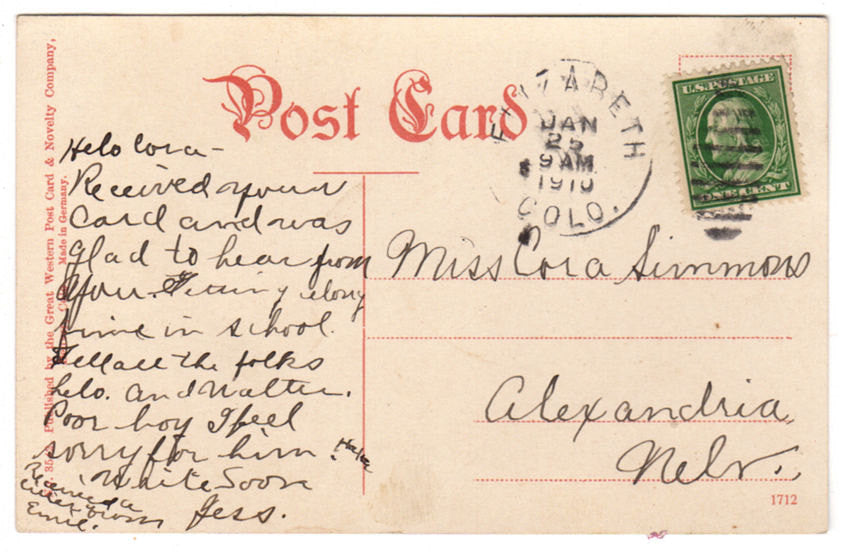 Post Card
35 Published by the Great Western Post Card & Novelty Company,
Made in Germany.
ELIZABETH
JAN
25
9 AM
1910
COLO.
U.S. POSTAGE
ONE CENT
Helo Cora-
Received your
Card and was
glad to hear from
you. Geting along
fine in school.
Tell all the folks
helo. and Walter.
Poor boy I feel
sorry for him
White Soon
Jess.
Received a
letter from
Ernie.
Miss Cora Simmons
Alexandria,
Nebr.
1712